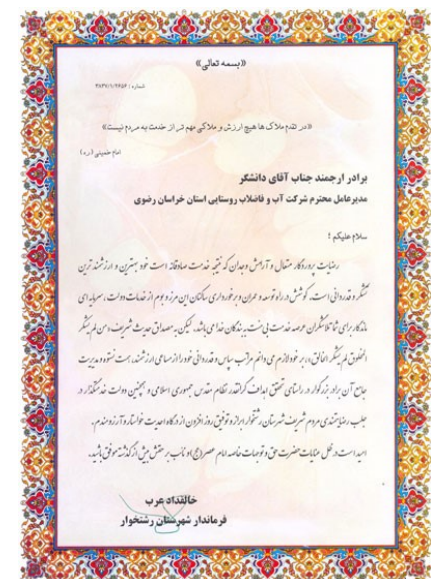 «بسمه تعالی»
شماره : ۲۸۳۷/۱/۲۶۵۶
«در تقدم ملاک ها هیچ ارزش و ملاکی مهم تر از خدمت به مردم نیست»
امام خمینی (ره)
برادر ارجمند جناب آقای دانشگر
مدیرعامل محترم شرکت آب و فاضلاب روستایی استان خراسان رضوی
سلام علیکم !
رضایت پروردگار متعال و آرامش وجدان که نتیجه خدمت صادقانه است خود بهترین و ارزشمندترین
تشکر و قدردانی است، کوشش در راه توسعه و عمران و برخورداری ساکنان این مرز و بوم از خدمات دولت، سرمایه ای
ماندگار برای شما تلاشگران عرصه خدمت بی منت به بندگان خدا می باشد، لیکن به مصداق حدیث شریف «من لم یشکر
المخلوق لم یشکر الخالق»، بر خود لازم می دانم مراتب سپاس و قدردانی خود را از مساعی ارزشمند، همت نستوه و مدیریت
جامع آن برادر بزرگوار در راستای تحقق اهداف گرانقدر نظام مقدس جمهوری اسلامی و همچنین دولت خدمتگذار در
جلب رضایتمندی مردم شریف شهرستان رشتخوار ابراز و توفیق روزافزون از درگاه احدیت خواستار و آرزومندم.
امید است در ظل عنایات حضرت حق و توجهات خاصه امام عصر (عج) و نائب بر حقش بیش از گذشته موفق باشید.
خالقداد عرب
فرماندار شهرستان رشتخوار